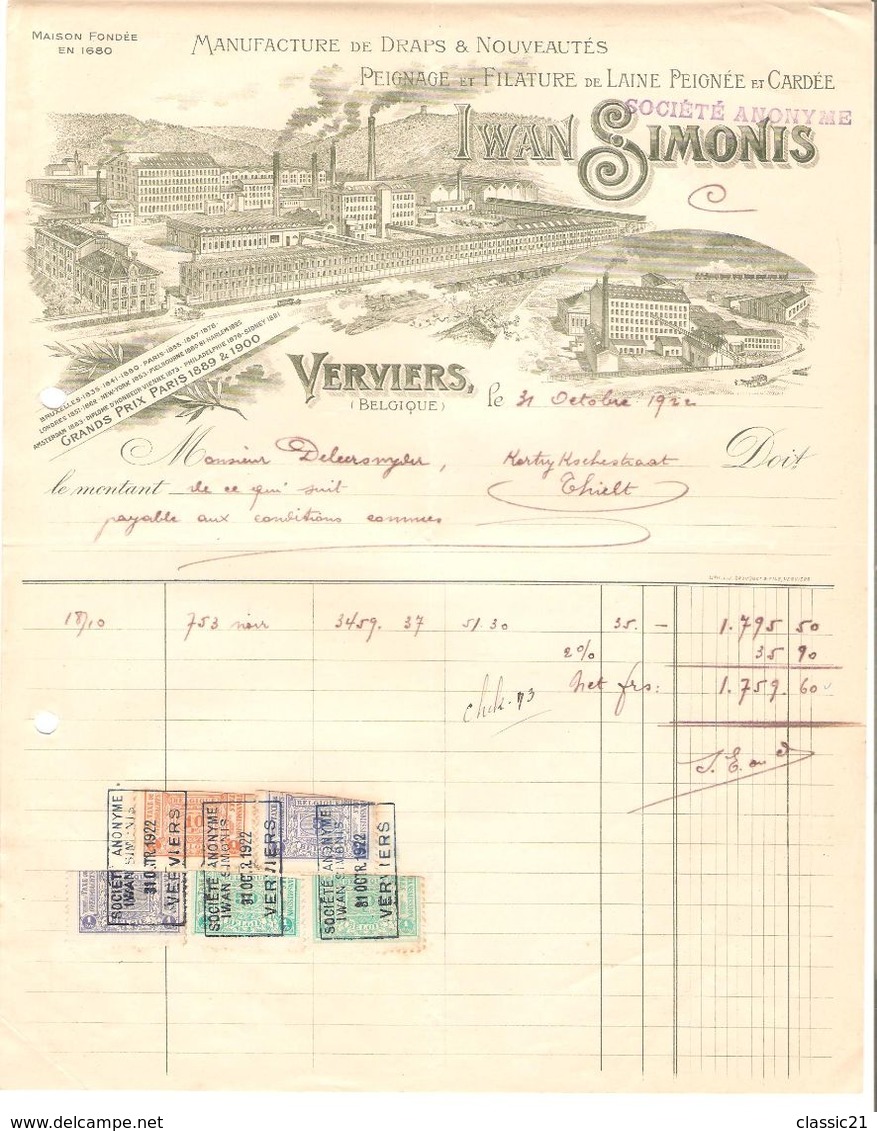 MAISON FONDÉE
EN 1680
MANUFACTURE DE DRAPS & NOUVEAUTÉS
PEIGNAGE ET FILATURE DE LAINE PEIGNÉE ET CARDÉE
SOCIÉTÉ ANONYME
IWAN SIMONIS
BRUXELLES-1835-1841-1880-PARIS-1855-1867-1878-
LONDRES 1851-1862-NEW-YORK 1853-MELBOURNE 1880-81-HARLEM 1895
AMSTERDAM 1883-DIPLOME D'HONNEUR VIENNE 1873-PHILADELPHIE 1876-SIDNEY 1881
GRANDS PRIX PARIS 1889 & 1900
VERVIERS, le 31 Octobre 1922
(BELGIQUE)
Monsieur Deleersnyder, Kortrykschestraat Doit
le montant de ce qui suit Thielt
payable aux conditions connues
18/10 753 noir 3459. 37 51.30 35.- 1.795 50
2% 35 90
net frs: 1.759.60
S.E. ou O
SOCIÉTÉ ANONYME
IWAN SIMONIS
31 OCTR. 1922
VERVIERS
SOCIÉTÉ ANONYME
IWAN SIMONIS
31 OCTR. 1922
VERVIERS
SOCIÉTÉ ANONYME
IWAN SIMONIS
31 OCTR. 1922
VERVIERS
classic21